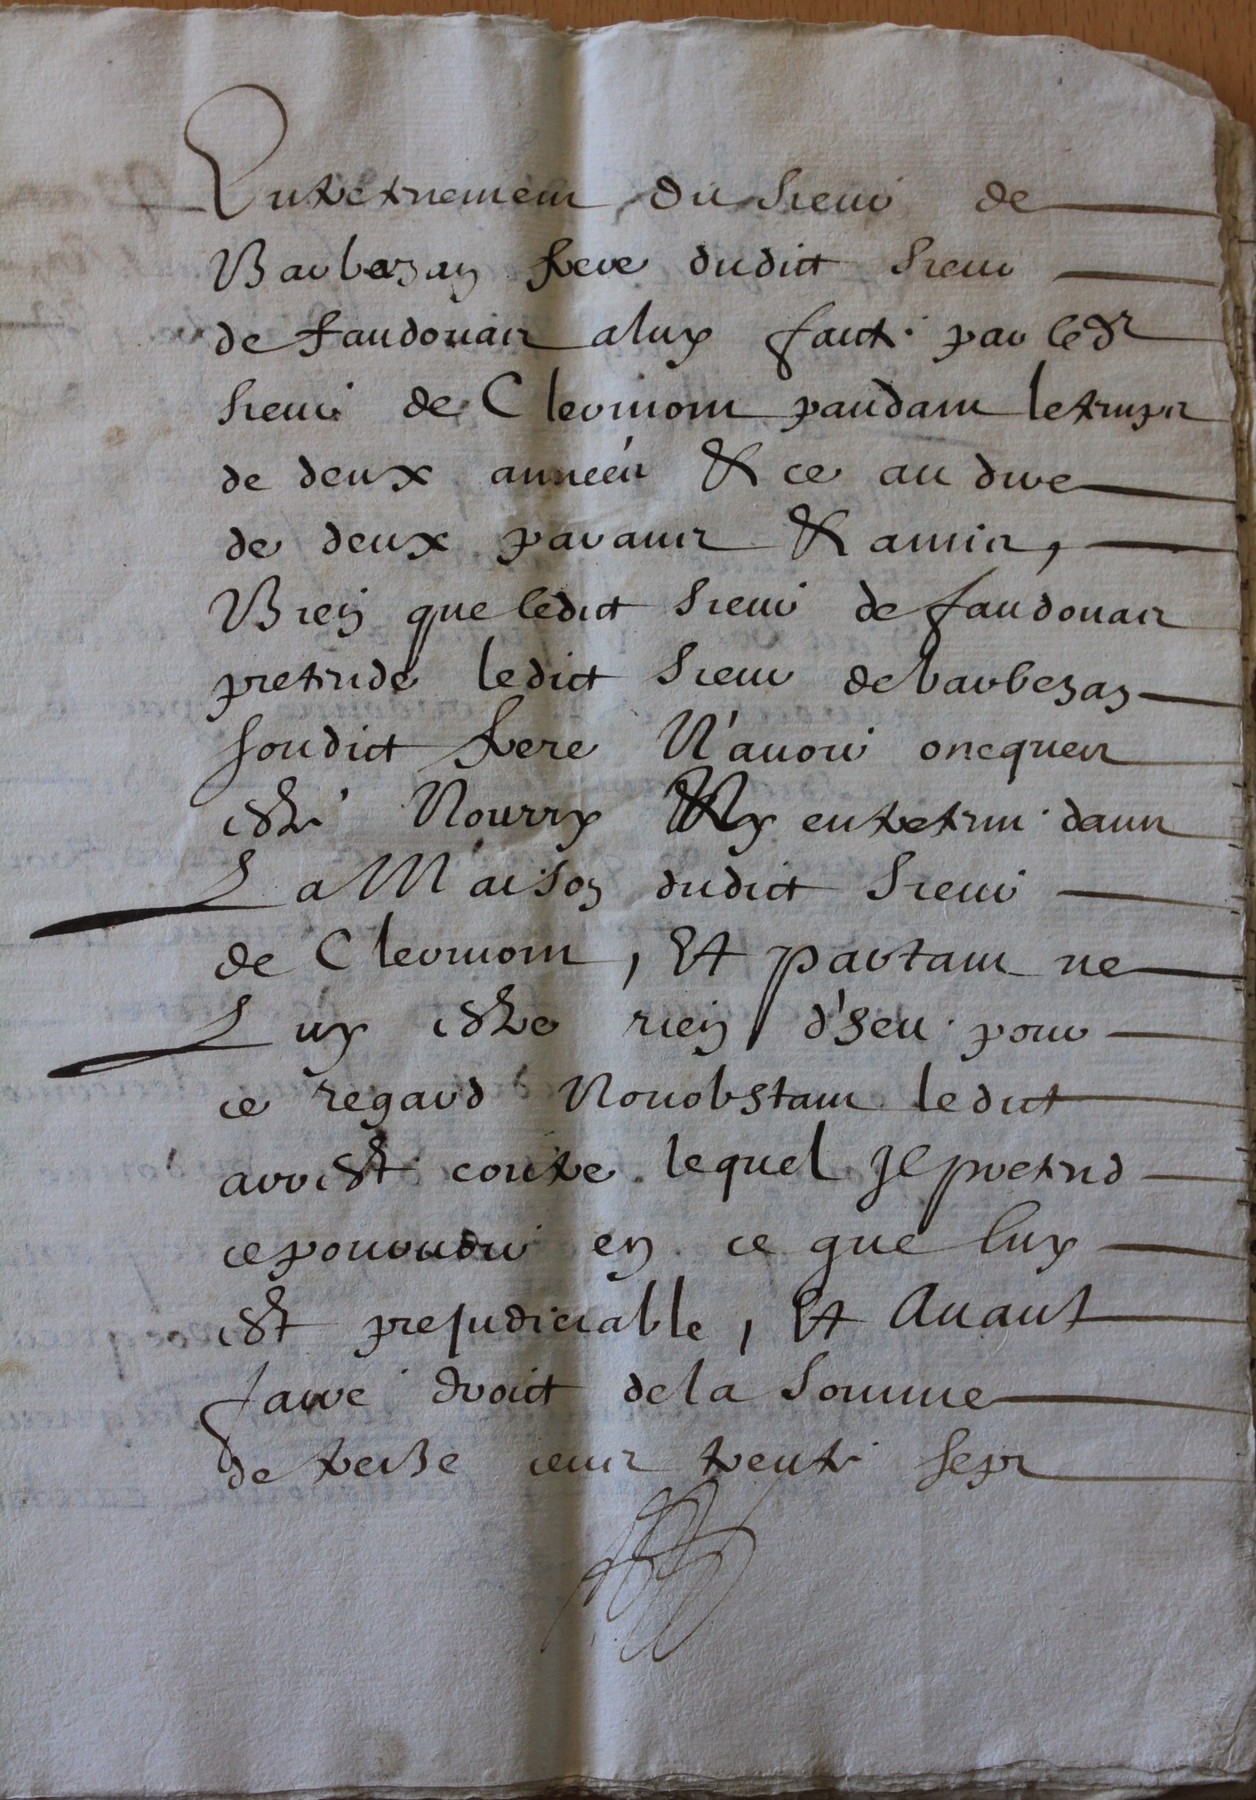 Entretnement du sieur de
Barbazan frere dudict sieur
de faudouas a luy faict par led.
sieur de Clermont pandant le temps
de deux années & ce au dire
de deux parants & amis,
Bien que ledict sieur de faudouas
pretende ledict sieur de barbezan
soudict frere N'avoir oncques
esté Nourry Ny entretenu dans
La Maison dudict sieur
de Clermont, Et partant ne
Luy estre rien d'heu pour
ce regard Nonobstant ledict
arrest contre lequel je pretend
ce pourvoir en ce que luy
est prejudiciable, Et Avant
faire droict de la somme
de treize cens trente sept